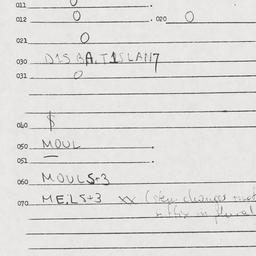 011 0
012 0 . 020 0
021 0
030 DIS BA.TISLANT
031 0
040 $
050 MOUL
051 — .
060 MOULS+3
070 MEILS+3 xx (stem changes not
suffix in plural